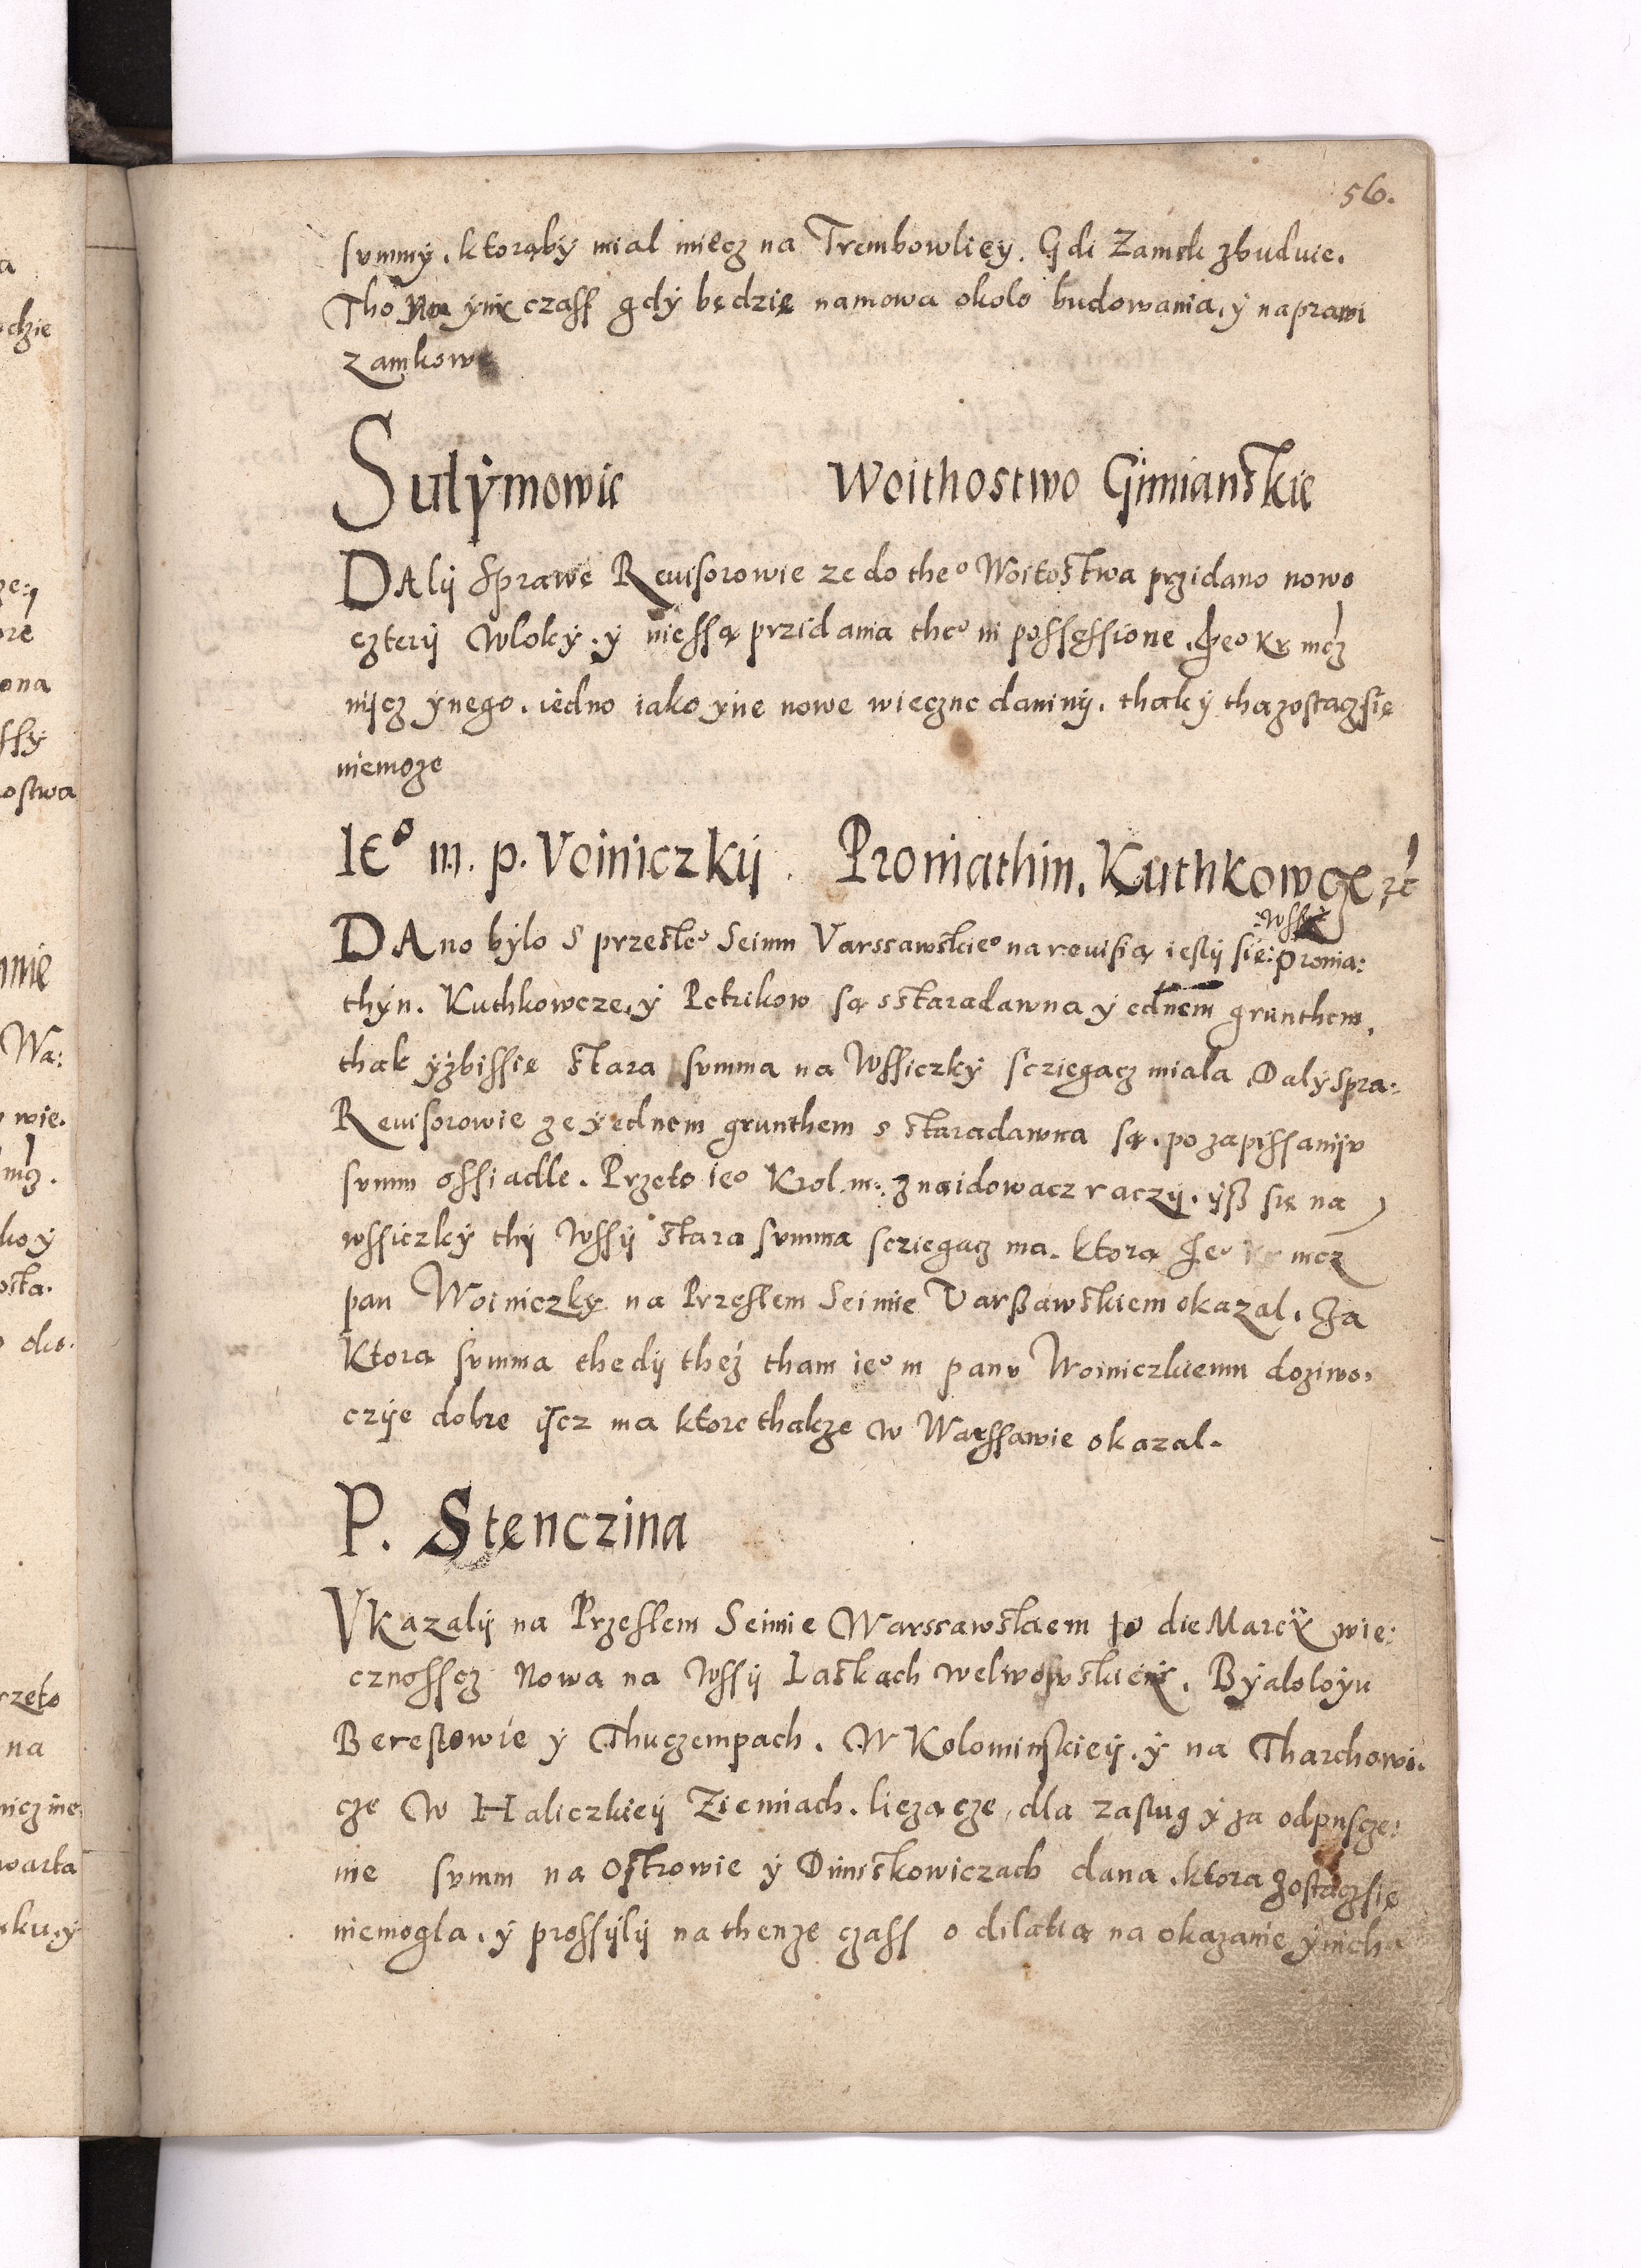 56.
summÿ. ktorąbÿ mial miecz na Trembowlieÿ. Gdi Zamek zbuduie.
Tho na ÿnÿ czass gdÿ będzie namowa okolo budowania, ÿ naprawi
zamkowe
Sulÿmowie Woithostwo Gimianskie
DAlÿ Sprawe Reuisorowie ze do the° Woitostwa przidano nowo
czterÿ Wloky. ÿ niessą przidania the° in possessione. Je° Kr mcz
nÿcz ÿnego. iedno iako ÿne nowe wieczne daninÿ. thakÿ tha zostacz sie
niemoze
IE° m. p. Voiniczkÿ. Proniathin. Kuthkowcze zć
:Wssÿ
DAno bÿlo s przesłe° Seimu Varssawskie° na reuisią iestÿ sie: Pronia:
thÿn. Kuthkowcze, ÿ Petrikow są s staradawna ÿednem grunthem,
thak ÿzbissie stara summa na Wssiczkÿ scziegacz miala. Dalÿ spra:
Reuisorowie ze ÿednem grunthem s staradawna są. po zapissanÿu
summ ossiadle. Przeto ie° Krol. m: znaidowacz raczÿ. ÿß się na
wssiczkÿ thÿ Wssÿ stara summa scziegacz ma. ktorą Je° Kr mcz
pan Woiniczkÿ na Przeslem Seimie Varßawskiem okazal. Za
Ktorą summą thedÿ theż tham ie° m panu Woiniczkiemu doziwo,
czÿe dobre ÿscz ma ktore thakze w Warssawie okazal.
P. Stenczina
Vkazalÿ na Przeslem Seimie Warssawskiem die Marcÿ wie:
cznosscz Nowa na Wssÿ Laskach Bÿaloloÿu
Berestowie ÿ Thuczempach. W Kolominskieÿ. ÿ na Tharchowi.
cze W Haliczkieÿ Ziemiach. liczącze, dla zaslug ÿ za odpuscze:
nie summ na Ostrowie ÿ Dimskowiczach dana. ktora zostacz się
niemogla. ÿ prossÿlÿ na thenze czass o dilatią na okazanie ÿnich